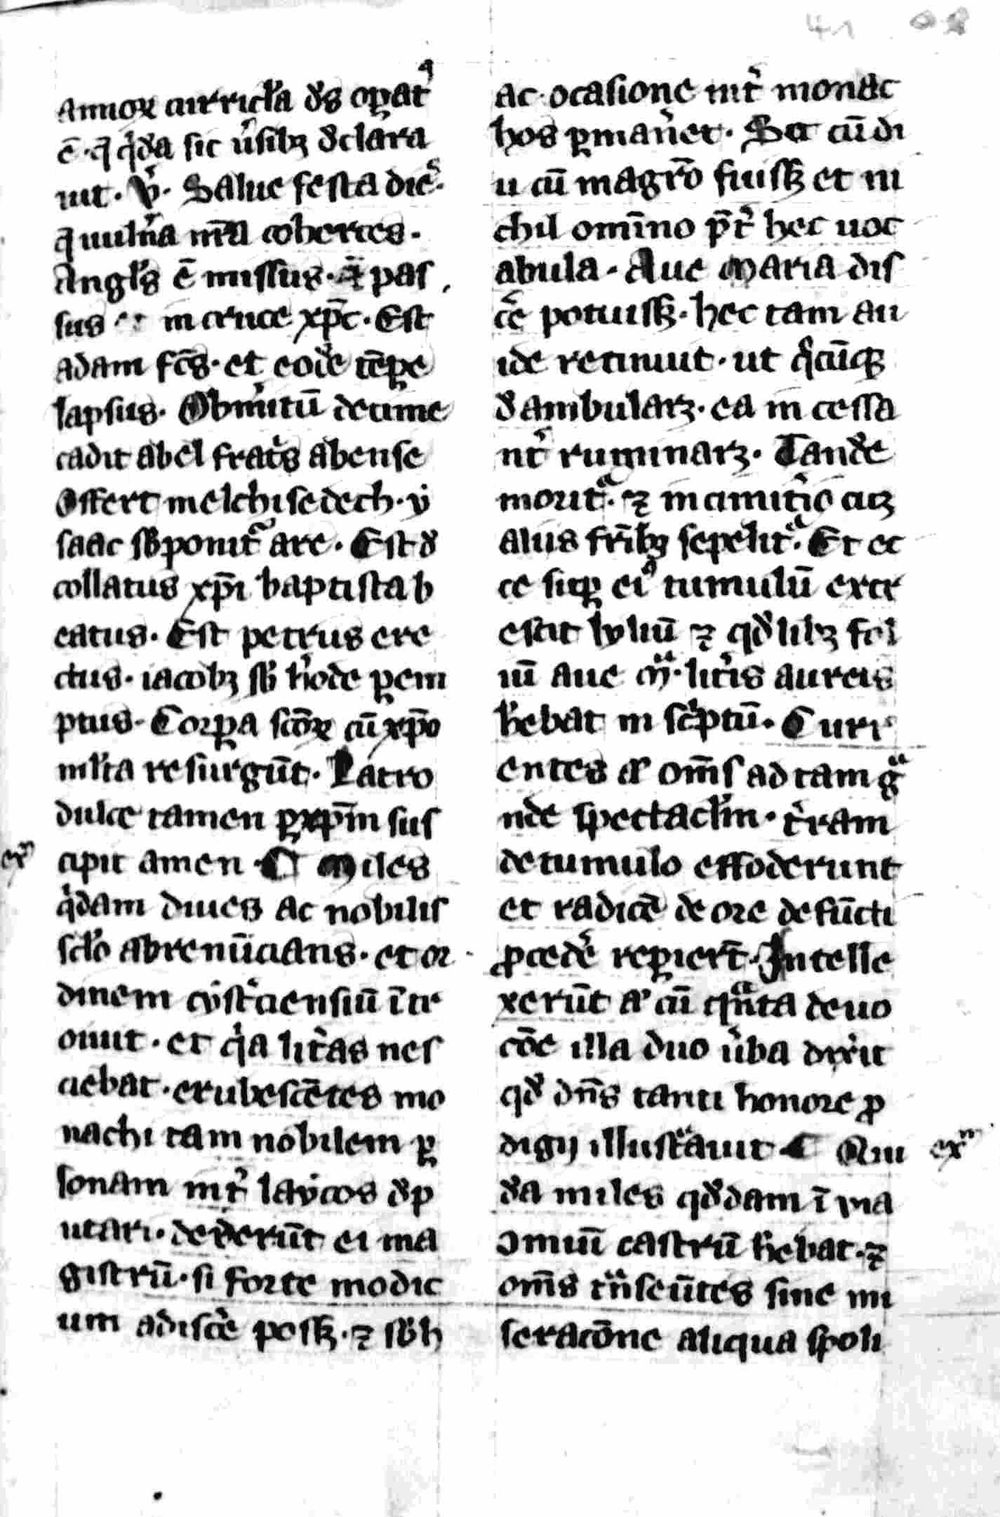 41
annoꝝ curricl̃a d̾s oꝑat᷒
ē · q̄ q̇dā sic ṽsibꝫ d̾clara
uit · ꝟ · Salue festa dies ·
q̄ uuln̾a nr̄a coherces ·
Angl̾s ē missus · ⁊ pas
sus in cruce xp̄c · Est
adam fc̄s · et eodē tēpe
lapsus · Ob meritū decime
cadit abel frat̾s ab ense
Offert melchisedech · ẏ
saac sb̾ponit᷒ are · Est d̾
collatus xp̄i baptista b
eatus · Est petrus ere
ctus · iacobꝫ sb̾ h̾ode ꝑem
ptus · Corꝑa scōꝝ cū xp̄o
ml̾ta resurgūt · Latro
dulce tamen ꝑ xp̄m sus
cipit amen ¶ Miles
q̇dam diues ac nobilis
scl̾o abrenūcians · et or
dinem cẏst̾ciensiū īt̾
oiuit · et q̇a litt̾as nes
ciebat · erubescētes mo
nachi tam nobilem ꝑ
sonam int̾ laẏcos d̾p
utari · dederūt ei ma
gistrū · si forte modic
um adisc̾e possꝫ · ⁊ sb̾ h
ac · ocasione int̾ monac
hos ꝑman̾et · Sꝫ cū di
u cū magr̄o fuissꝫ et ni
chil omīno p̄t̾ hec uoc
abula · Aue Maria dis
c̾e potuissꝫ · hec tam au
ide retinuit · ut q̇cūqꝫ
d̾ambularꝫ · ea in cessa
nt̾ ruminarꝫ · Tandē
morit᷒ · ⁊ in cimit̾io cū
aliis fr̄ibꝫ sepelit᷒ · Et ec
ce suꝑ ei᷒ tumulū excr
escit lyliū ⁊ qd̾libꝫ fol
iū aue mᵃ · litt̾is aureis
h̾ebat in sc̾ptū · Curr
entes oms ad tam gᵃ
nde spectacl̾m · t̾ram
de tumulo effoderunt
et radicē de ore defūcti
ꝓced̾e reꝑierт̄ · Intelle
xerūt cū qᵃnta deuo
cōe illa duo ũba dix̾it
qd̾ dn̄s tanti honore ꝓ
digij illustᵃuit ¶ Qui
dā miles qd̾dam ī uia
omniū castrū h̾ebat · ⁊
oms tᵃnseūtes sine mi
seracōne aliqua spoli
exᵐ
exᵐ